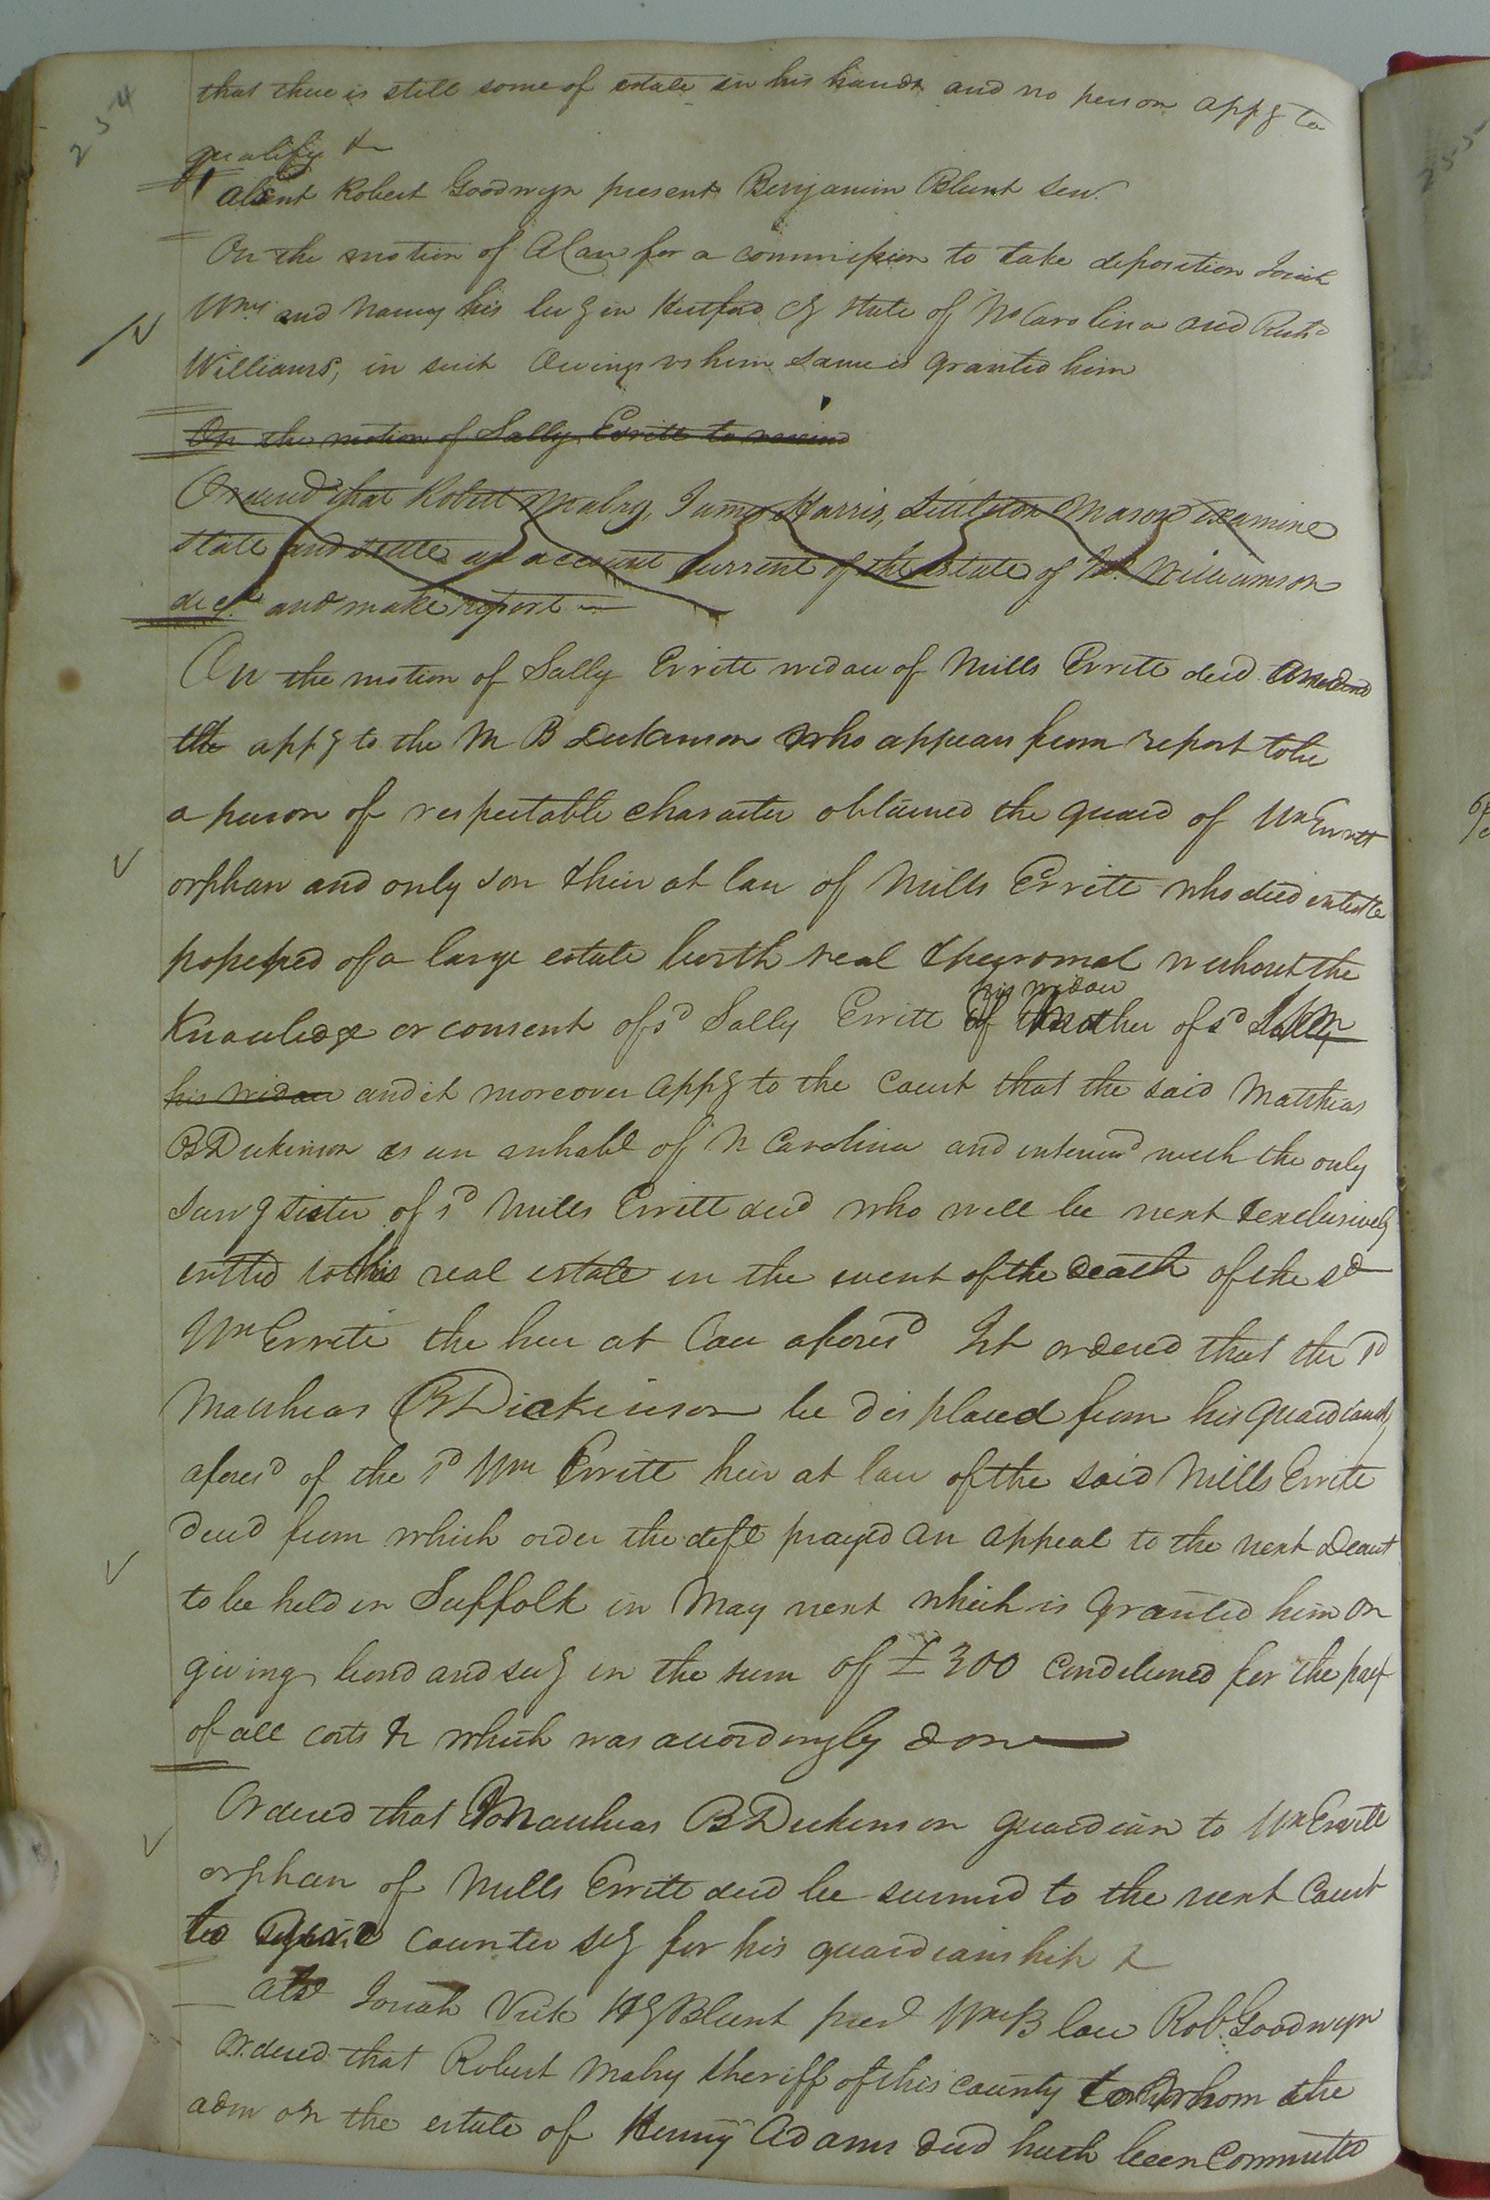 254
that there is still some of estate in his hands and no person appg to
qualify &
absent Robert Goodwyn present Benjamin Blunt senr
On the motion of A Law for a commission to take deposition Josiah
Wms and Nancy his in Hertford Cy state of No Carolina and
Williams, in suit Owings vs him same is granted him
On the motion of Sally Evritt to rescind
Ordered that Robert Mabry, James Harris, Littleton Mason examine
state and settle an account current of the estate of Williamson
decd and make report
On the motion of Sally Evritt widow of Mills Evritt decd
the appg to the M B Dickinson who appears from report to be
a person of respectable character obtained the guard of Wm Evritt
orphan and only son & heir at law of Mills Evritt who died intestate
possessed of a large estate both real & personal without the
his widow
knowledge or consent of sd Sally Evritt mother of sd
his widow and it moreover appg to the court that the said Matthias
B Dickinson is an inhabt of N Carolina and interm'd with the only
survg sister of sd Mills Evritt decd who will be next & exclusively
entitd to his real estate in the event of the death of the sd
Wm Evritt the heir at Law aforesd Its ordered that the sd
Matthias B Dickinson be displaced from his guardianship
aforesd of the sd Wm Evritt heir at law of the said Mills Evritt
decd from which order the deft prayed an appeal to the next D Court
to be held in Suffolk in May next which is granted him on
giving bond and secy in the sum of £300 conditioned for the payt
of all costs &c which was accordingly done
Ordered that Matthias B Dickinson guardian to Wm Evritt
orphan of Mills Evritt decd be summd to the next Court
to give counter secy for his guardianship &
abst Josiah Vick Hy Blunt prest Wm B law Rob. Goodwyn
Ordered that Robert Mabry sheriff of this county to whom the
adm on the estate of Henry Adams decd hath been committed
255